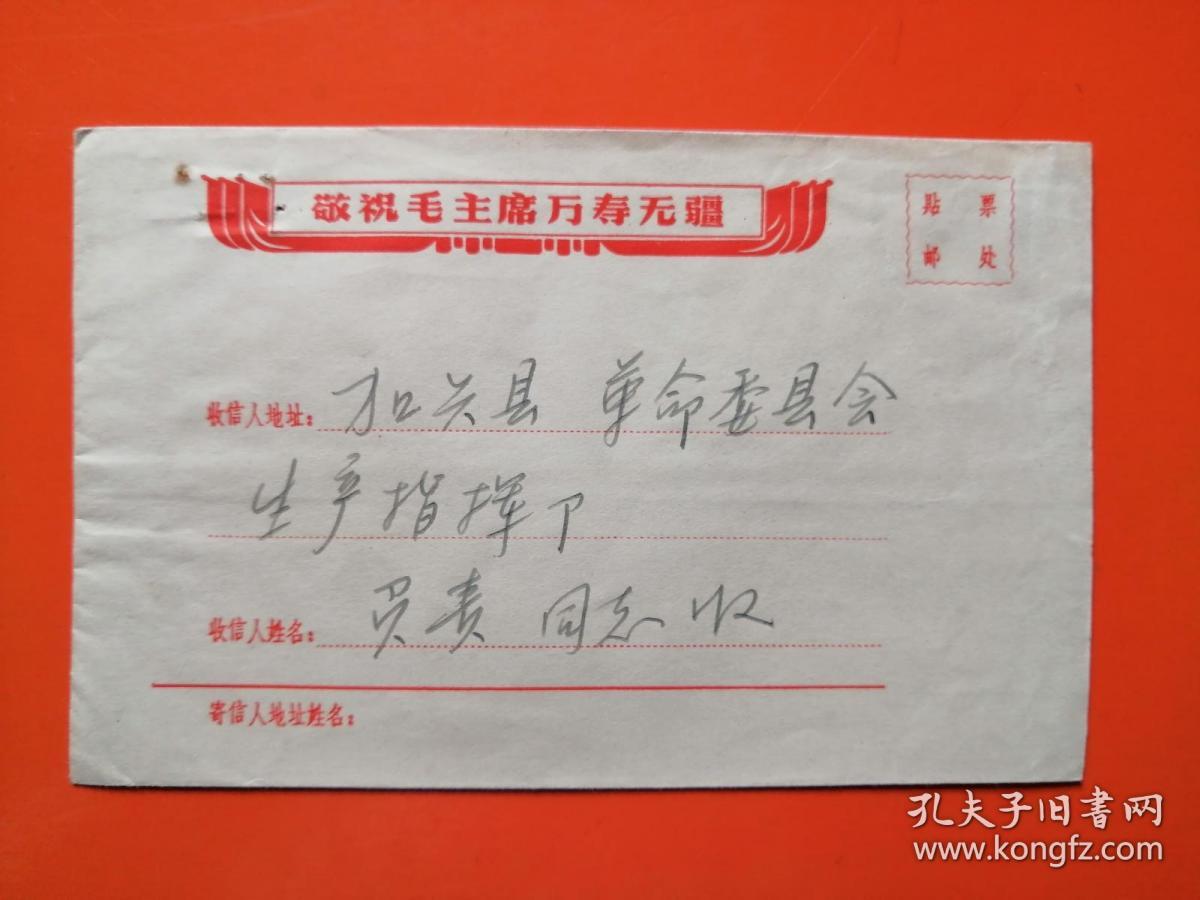 敬祝毛主席万寿无疆
贴票
邮处
收信人地址：加兴县 革命委员会
生产指挥卩
收信人姓名：负责 同志收
寄信人地址姓名：
孔夫子旧书网
www.kongfz.com